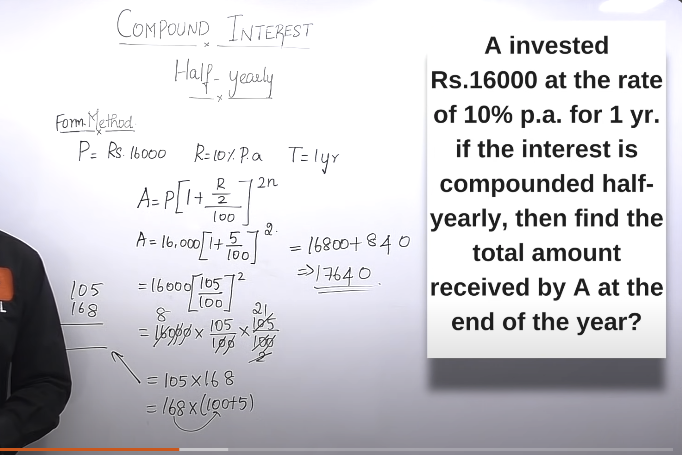 COMPOUND INTEREST
Half-yearly
Form. Method
P= Rs. 16000 R=10% P.a T=1yr
A=P[1+ (R/2)/100]^2n
A=16,000[1+ 5/100]^2.
=16000[105/100]^2
= 16000 × 105/100 × 105/100
8 21 2
=105×168
=168×(100+5)
=16800+840
⇒17640.
105
168
L
A invested
Rs.16000 at the rate
of 10% p.a. for 1 yr.
if the interest is
compounded half-
yearly, then find the
total amount
received by A at the
end of the year?